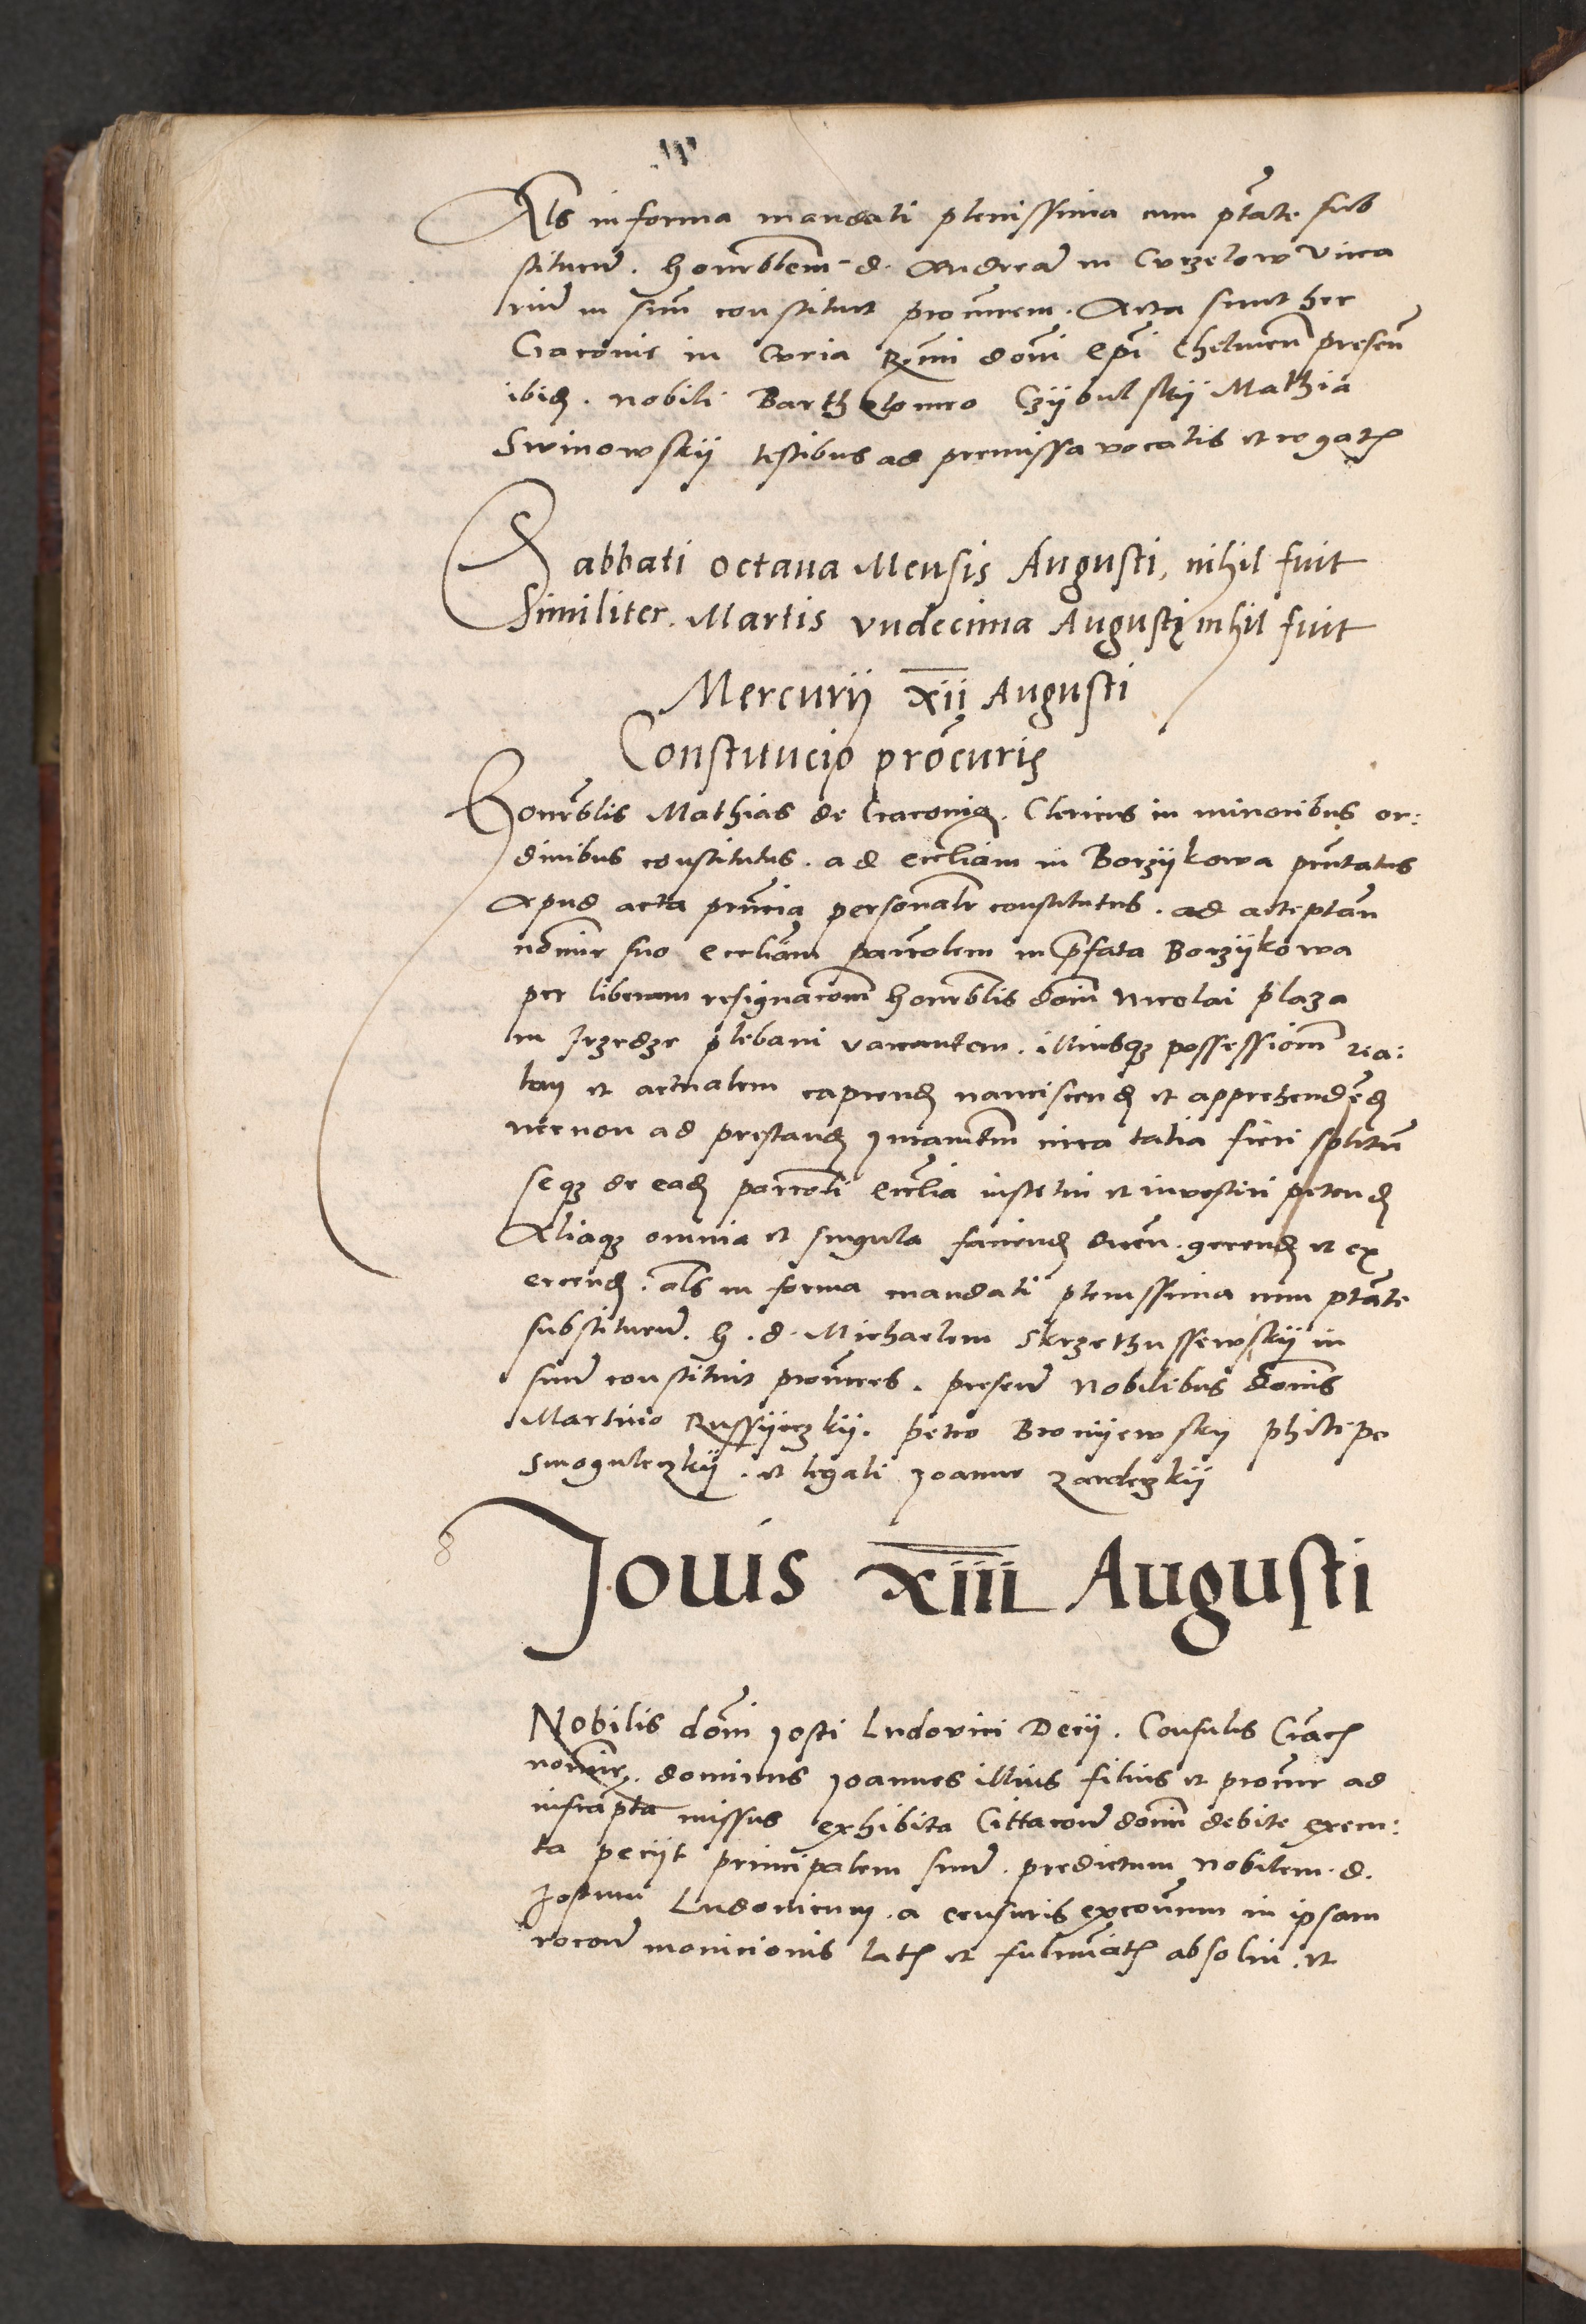 Als in forma mandati plenissima cum ptate sub
stituend. honorblem d. Andream in Curzelow vica
rium in suum constituit procurem. Acta sunt hec
Cracovie in Curia Rmi domi Epi Chelmen presen
ibid. nobili Bartholomeo Czijbulskij Mathia
Swinowskij testibus ad premissa vocatis et rogatis
Sabbati octava Mensis Augusti, nihil fuit
Similiter. Martis vndecima Augusti nihil fuit
Mercurij xij Augusti
Constitucio procuris
Honorblis Mathias de Cracovia. Clericus in minoribus or:
dinibus constitutus. ad eccliam in Borzijkowa pntatus
Apud acta pncia personalr constitutus. ad acceptan
nomine suo eccliam parrolem in pfata Borzijkowa
per liberam resignacom honorblis domi Nicolai plaza
in Jezedze plebani vacantem. illiusqz possessiom rea:
lem et actualem capiend nanciscend et apprehendend
necnon ad prestand juramentm circa talia fieri solitum
seqz de ead parroli ecclia institui et investiri petend
Aliaqz omnia et singula faciend dicen. gerend et ex
ercend. als in forma mandati plenissima cum ptate
substituend. h. d. Michaelem Skrzethussewskij in
suum constituit procures. presen Nobilibus domis
Martino Russijeczkij. petro Bronijewsky philipo
Smoguleczkij. et legali Joanne zardeczkij
Jovis xiii Augusti
Nobilis domi Josti Ludovici Decij. Consulis Cracs
nomine. dominus Joannes illius filius et procur ad
infrascpta missus exhibita Cittacone domi debite execu:
ta peciit principalem suum. predictum nobilem. d.
Jostum Ludovicum. a censuris excoium in ipsam
vocom monicionis latis et fulminatis absolui. et